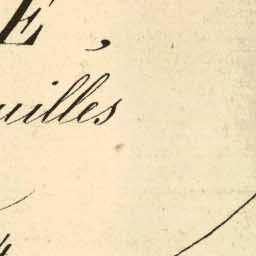 E,
uilles